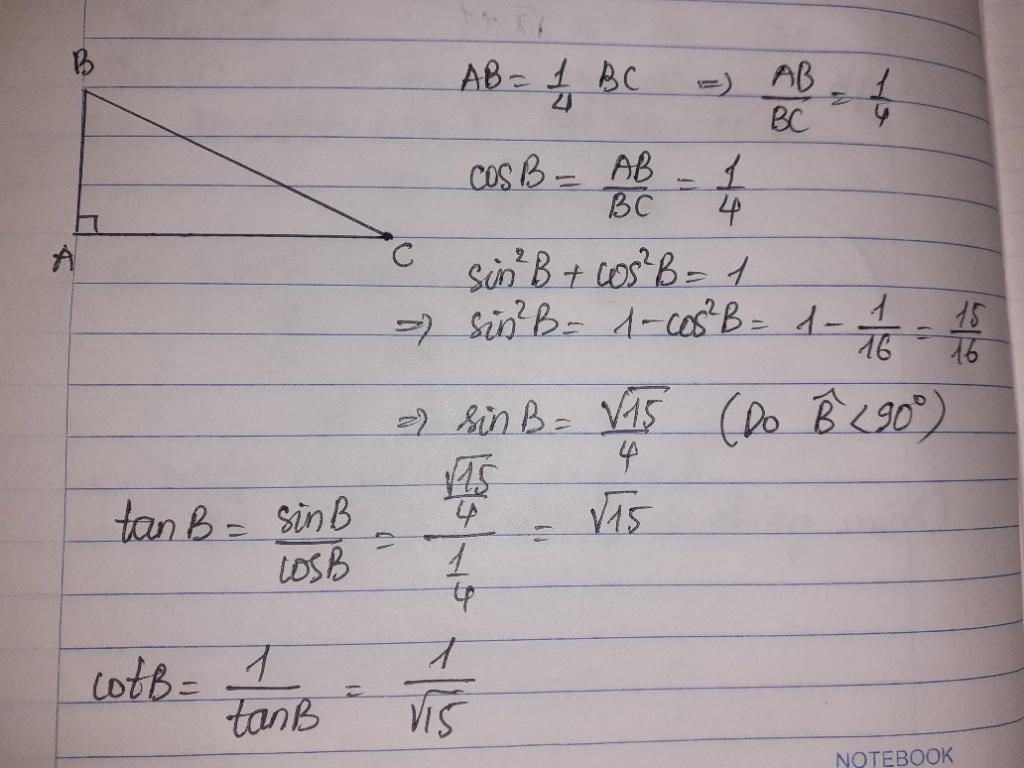 B
A
C
AB = 1/4 BC => AB/BC = 1/4
cosB = AB/BC = 1/4
sin²B + cos²B = 1
=> sin²B = 1 - cos²B = 1 - 1/16 = 15/16
=> sinB = √15/4 (Do B̂ < 90°)
tanB = sinB/cosB = (√15/4)/(1/4) = √15
cotB = 1/tanB = 1/√15
NOTEBOOK